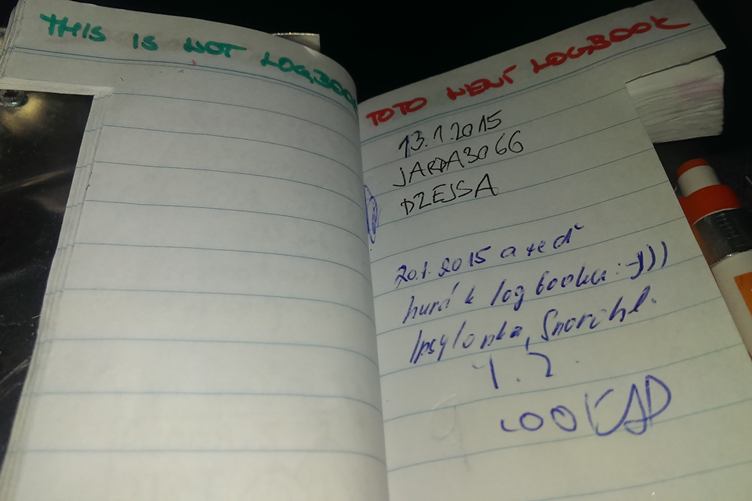 THIS IS NOT LOGBOOK
TOTO NENÍ LOGBOOK
13.1.2015
JARDA3066
DZEJSA
20.1.2015 a teď
hurá k logbooku :-)))
Ipsylonka, Snorchl.
1.2.